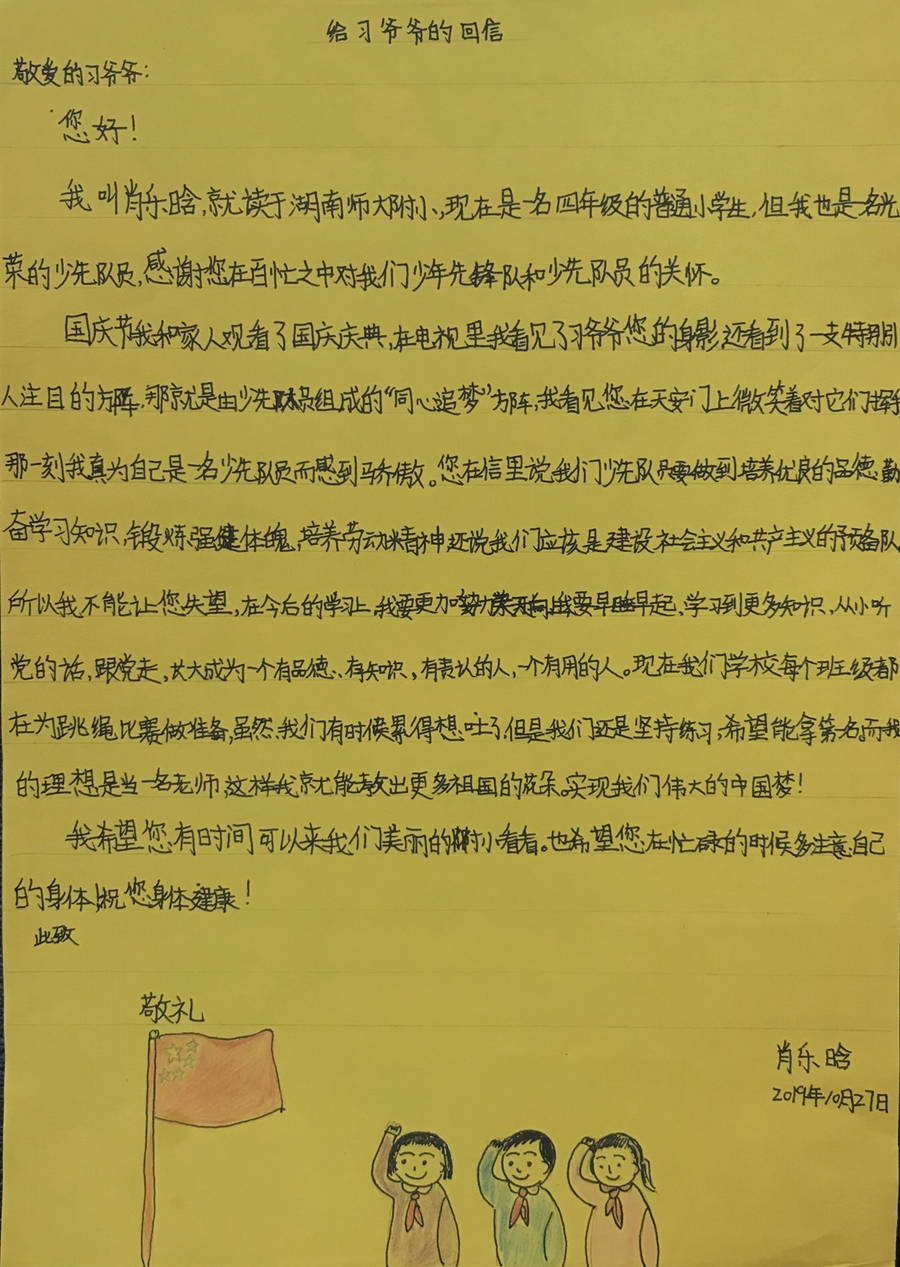 给习爷爷的回信
敬爱的习爷爷:
您好!
我叫肖乐晗,就读于湖南师大附小,现在是一名四年级的普通小学生,但我也是一名光
荣的少先队员,感谢您在百忙之中对我们少年先锋队和少先队员的关怀。
国庆节我和家人观看了国庆庆典,在电视里我看见了习爷爷您的身影还看到了一支特别引
人注目的方阵,那就是由少先队员组成的“同心追梦”方阵,我看见您在天安门上微笑着对它们挥手
那一刻我真为自己是一名少先队员而感到骄傲。您在信里说我们少先队员要做到培养优良的品德,勤
奋学习知识,锻炼强健体魄,培养劳动精神还说我们应该是建设社会主义和共产主义的预备队
所以我不能让您失望,在今后的学习上,我要更加努力,我要早睡早起、学习到更多知识,从小听
党的话,跟党走,长大成为一个有品德、有知识,有责认的人,一个有用的人。现在我们学校每个班级都
在为跳绳比赛做准备,虽然,我们有时候累得想吐了,但是我们还是坚持练习,希望能拿第一名,而我
的理想是当一名老师,这样我就能教出更多祖国的花朵。实现我们伟大的中国梦!
我希望您有时间可以来我们美丽的附小看看。也希望您在忙碌的时候多注意自己
的身体,祝您身体健康!
此致
敬礼
肖乐晗
2019年10月27日